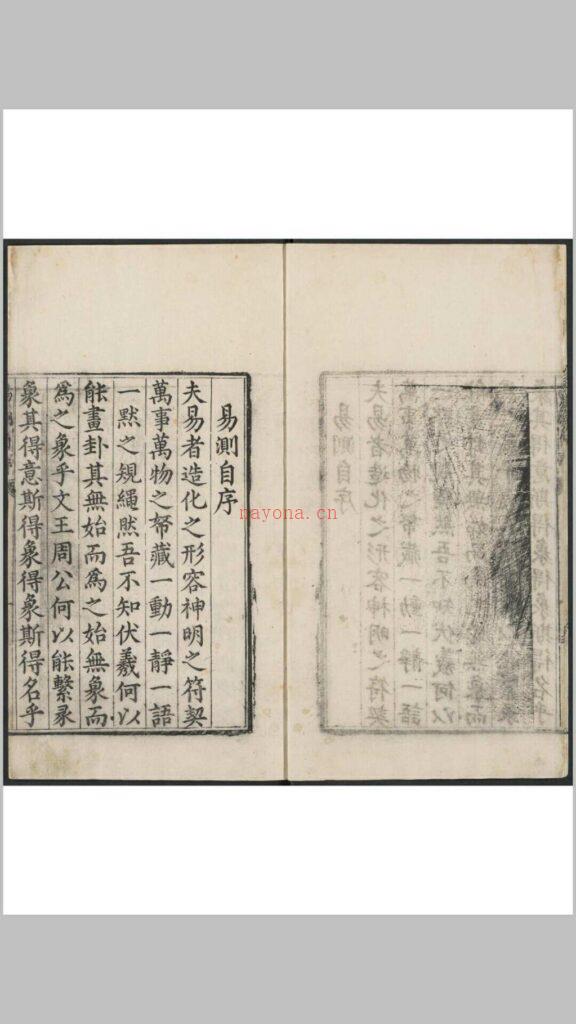 易測自序
夫易者造化之形容神明之符契
萬事萬物之帑藏一動一靜一語
一默之規繩然吾不知伏羲何以
能畫卦其無始而爲之始無象而
爲之象乎文王周公何以能繫彖
象其得意斯得象得象斯得名乎
nayona.cn